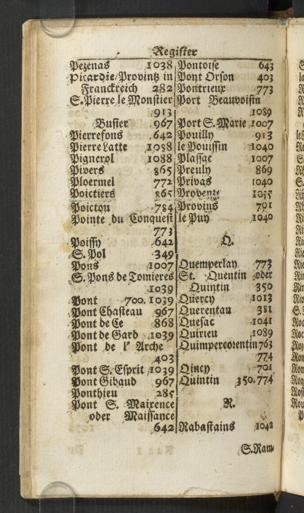 Register
Pezenas 1038
Picardie Provintz in
Franckreich 282
S. Pierre le Monstier
913
Buffet 967
Pierrefons 642
Pierre Latte 1058
Pignerol 1088
Pivers 865
Ploermel 772
Poictiers 865
Poictou 784
Pointe du Conquest
773
Poissy 642
S. Pol
Pons 1007
S. Pons de Tomieres
1039
Pont 700. 1039
Pont Chasteau 967
Pont de Ce 868
Pont de Gard 1039
Pont de l' Arche
403
Pont S. Esprit 1039
Pont Gibaud 967
Ponthieu 285
Pont S. Maixence
oder Maissance
642
Pontoise 643
Pont Orson 403
Pontrieux 773
Port Beauvoisin
1089
Port S. Marie 1007
Pouilly 913
le Poussin 1040
Plassac 1007
Preuly 869
Privas 1040
Provence 1055
Provins 701
le Puy 1040
Q.
Quemperlay 773
St. Quentin oder
Quintin 350
Quercy 1013
Querentau 381
Quesac 1041
Quirieu 1089
Quimpercorentin 763
774
Quincy 701
Quintin 350. 774
R.
Rabastains 1042
(S. Ram-